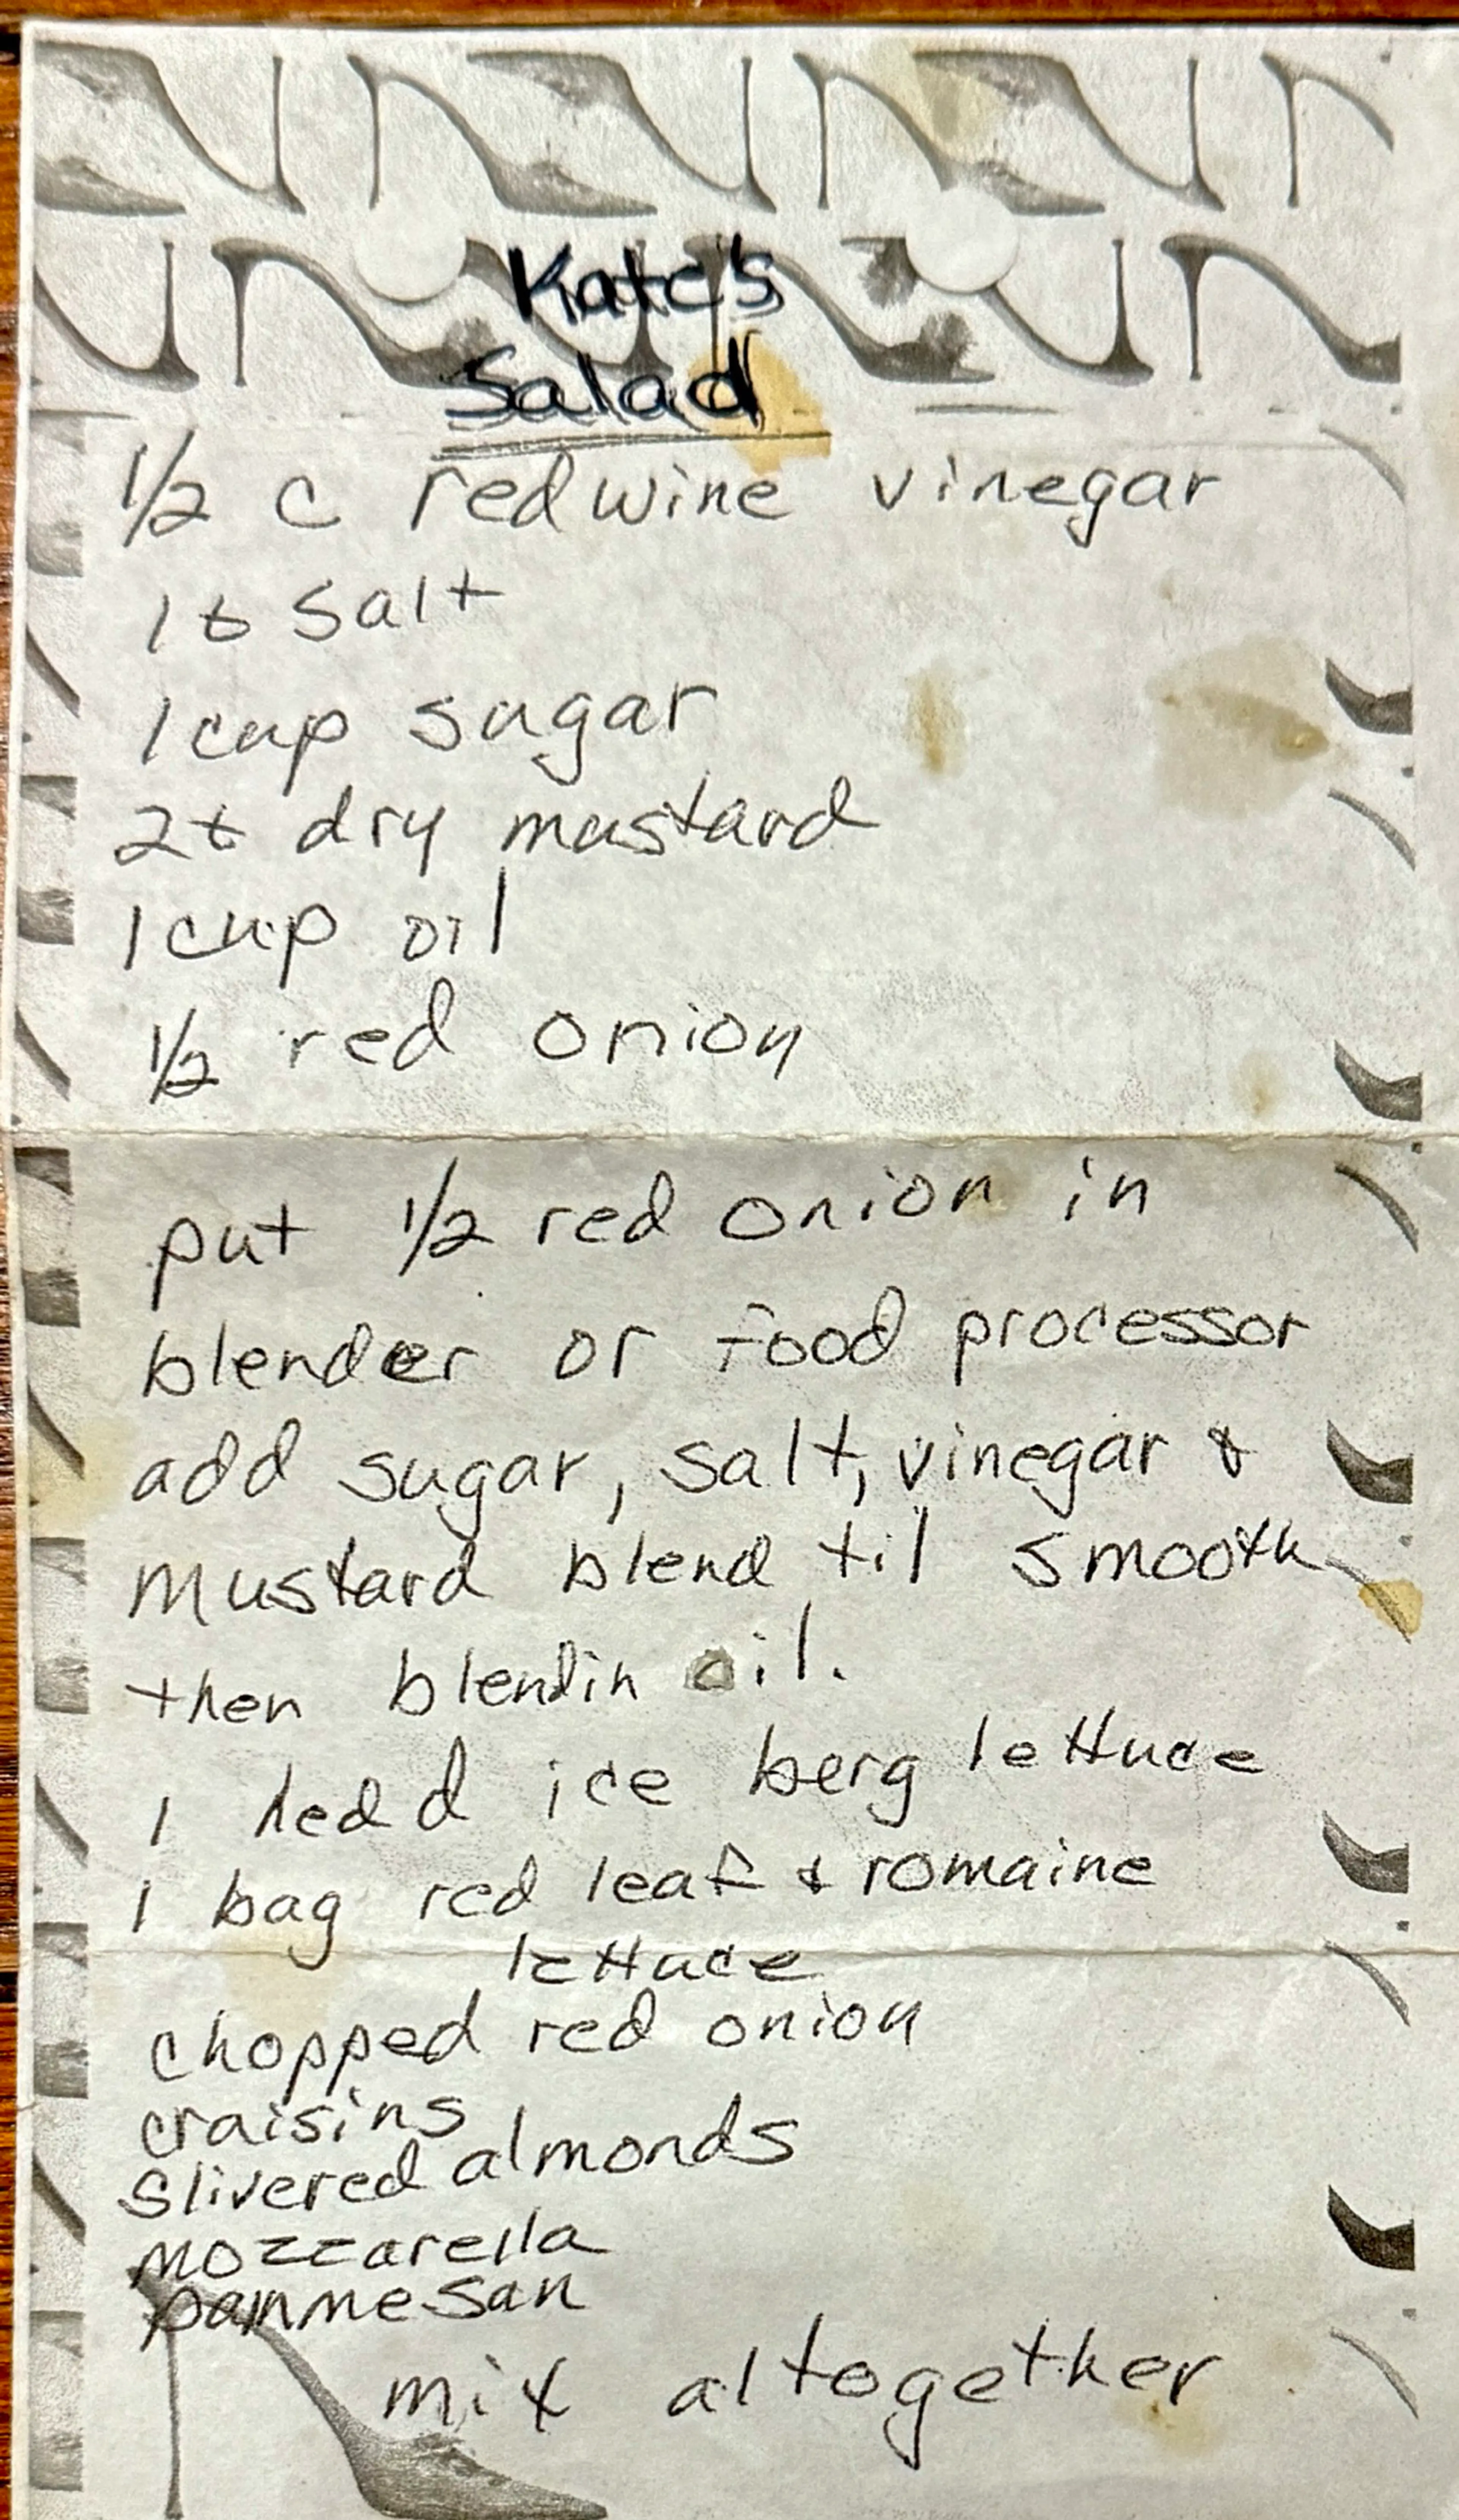 Kate's
Salad
1/2 c redwine vinegar
1 t salt
1 cup sugar
2 t dry mustard
1 cup oil
1/2 red onion
put 1/2 red onion in
blender or food processor
add sugar, salt, vinegar &
mustard blend til smooth
then blendin oil.
1 head ice berg lettuce
1 bag red leaf & romaine
lettuce
chopped red onion
craisins
slivered almonds
mozzarella
parmmesan
mix altogether